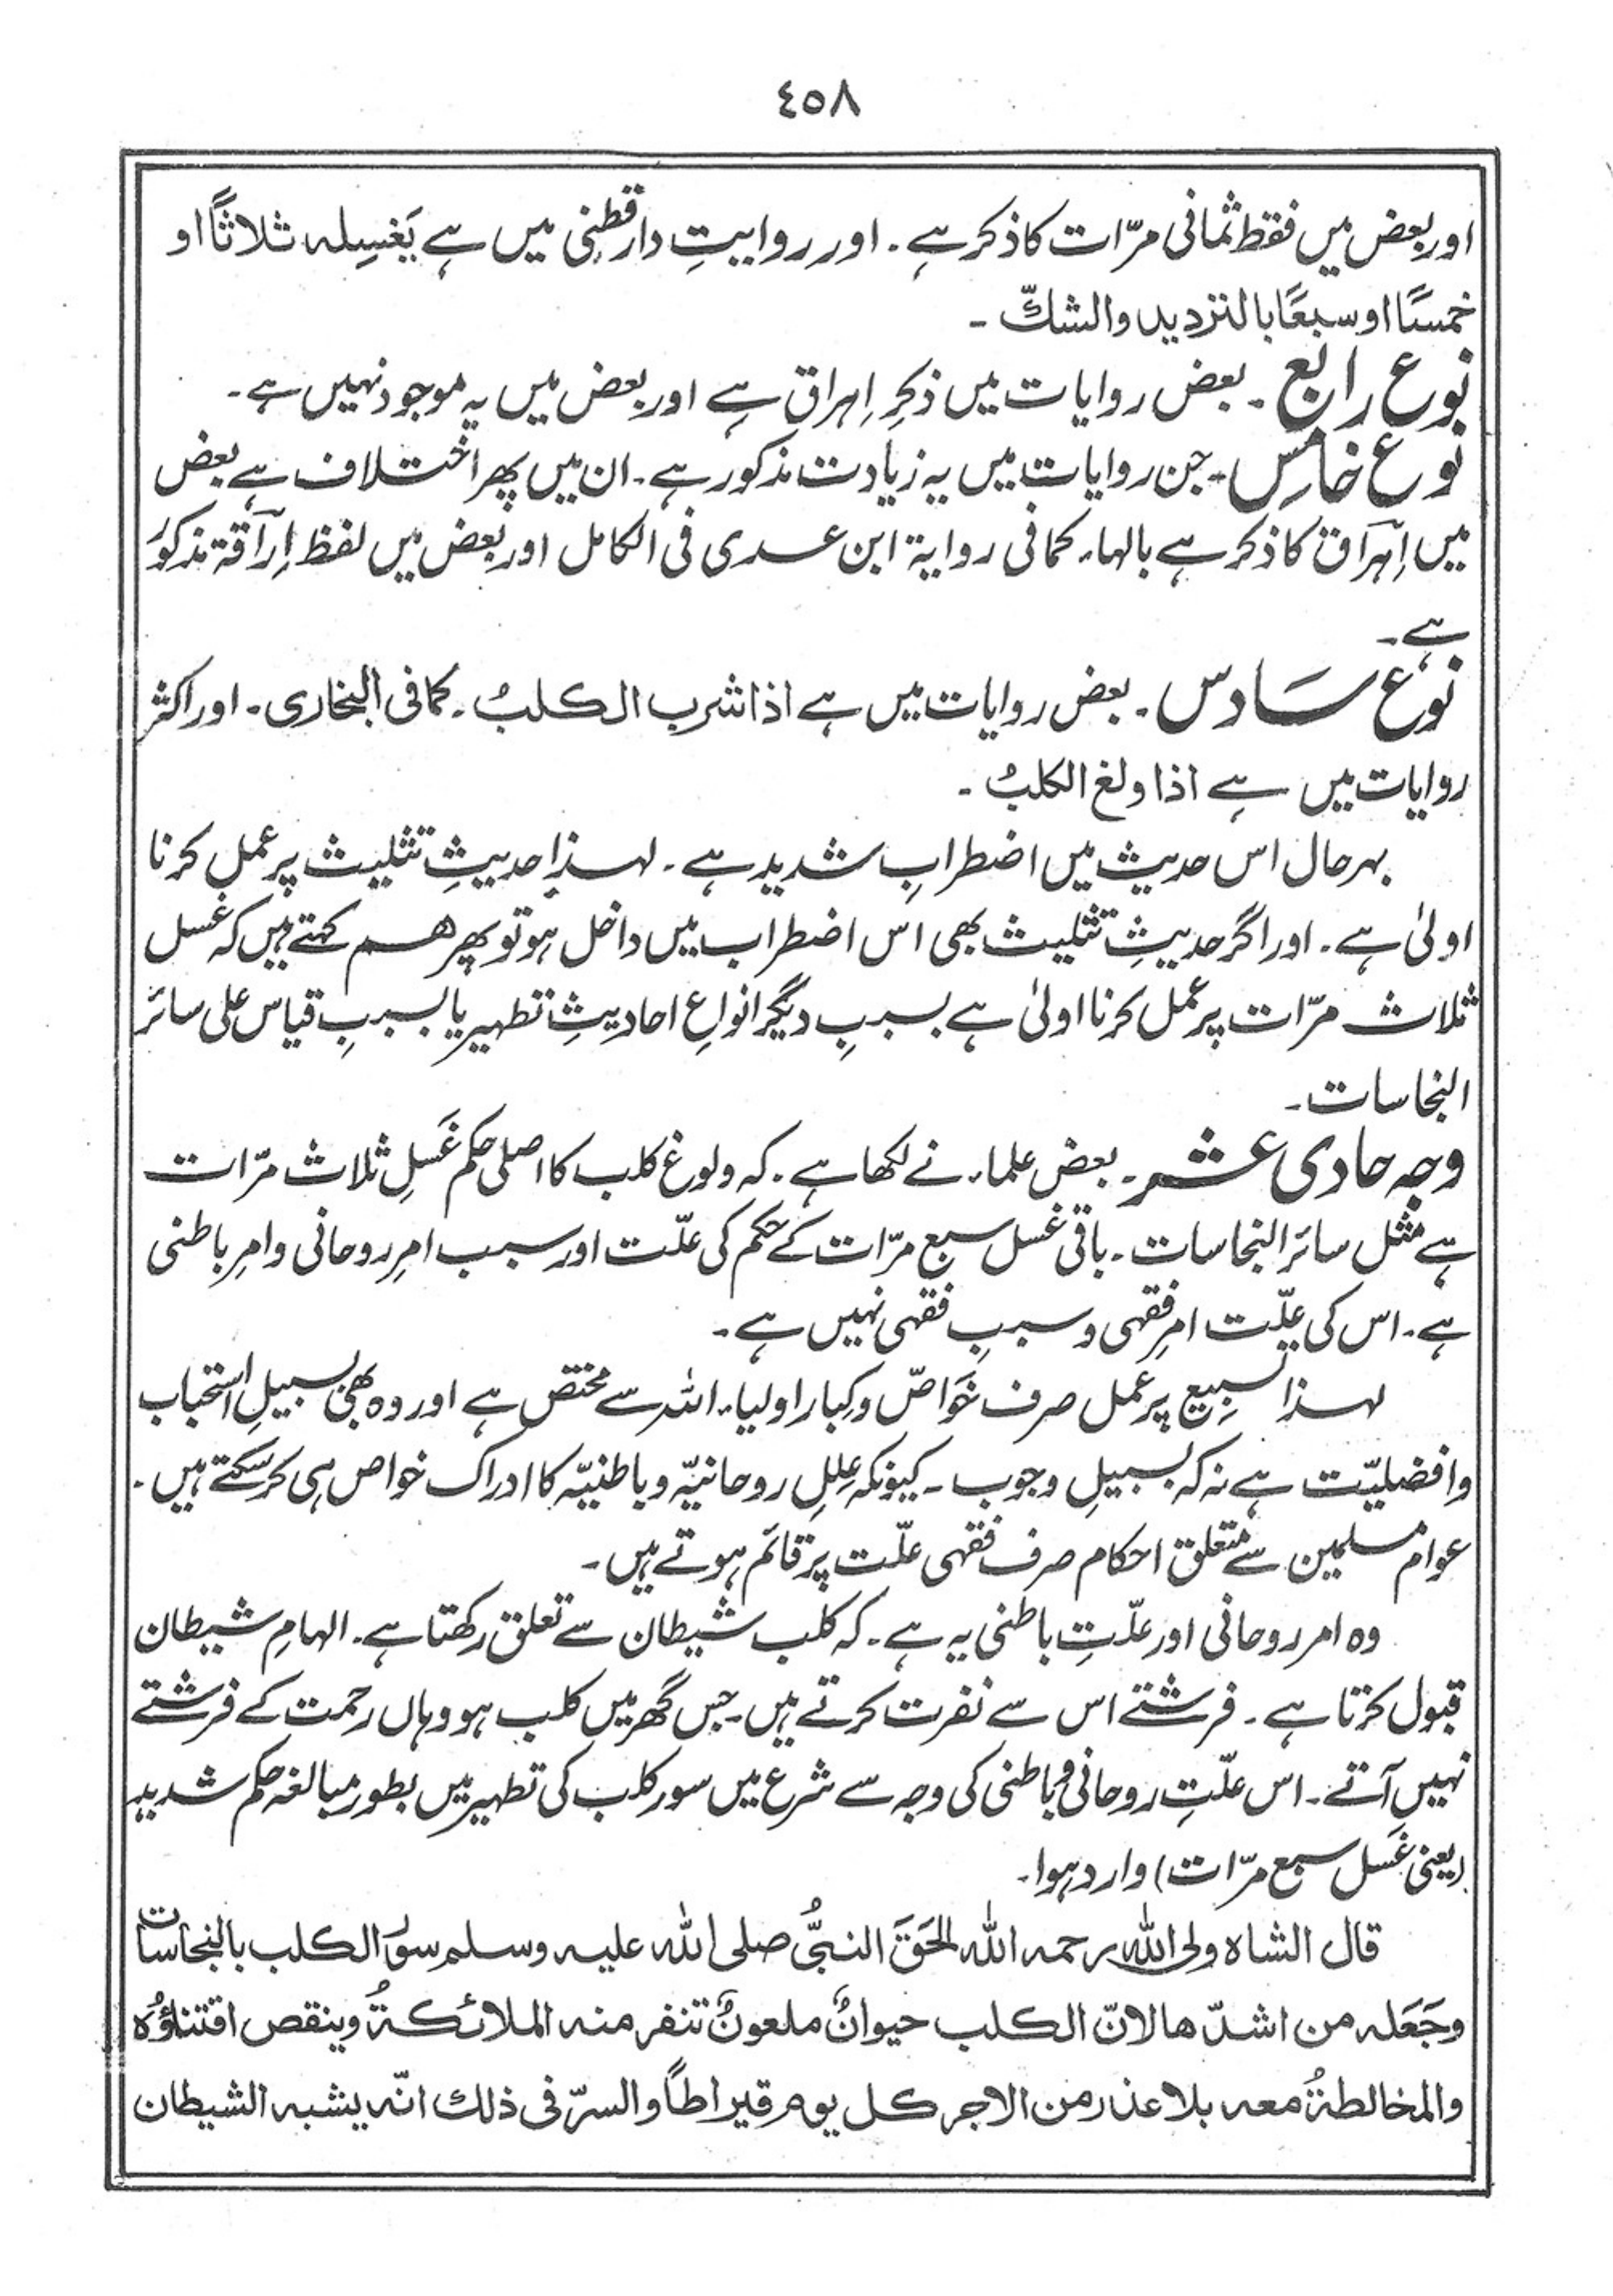 ٤٥٨
اور بعض میں فقط ثمانی مرّات کا ذکر ہے ۔ اور روایتِ دارقطنی میں ہے یَغسِله ثلاثًا او
خمسًا او سبعًا بالتردید والشكّ ۔
نوع رابع ۔ بعض روایات میں ذکرِ اِہراق ہے اور بعض میں یہ موجود نہیں ہے ۔
نوع خامس ۔ جن روایات میں یہ زیادت مذکور ہے ۔ ان میں پھر اختلاف ہے بعض
میں اِہَراق کا ذکر ہے بالہاء کما فی روایۃ ابن عدی فی الکامل اور بعض میں لفظ اِراَقۃ مذکور
ہے ۔
نوع سَادس ۔ بعض روایات میں ہے اذا شرب الكلبُ ۔ کما فی البخاری ۔ اور اکثر
روایات میں ہے اذا ولغ الکلبُ ۔
بہرحال اس حدیث میں اضطرابِ شدید ہے ۔ لہذا حدیثِ تثلیث پر عمل کرنا
اولیٰ ہے ۔ اور اگر حدیثِ تثلیث بھی اس اضطراب میں داخل ہو تو پھر ہم کہتے ہیں کہ غسل
ثلاث مرّات پر عمل کرنا اولیٰ ہے بسببِ دیگر انواعِ احادیثِ تطہیر یا بسببِ قیاس علی سائر
النجاسات ۔
وجہ حادی عشر ۔ بعض علماء نے لکھا ہے ۔ کہ ولوغ کلب کا اصلی حکم غَسلِ ثلاث مرّات
ہے مثل سائر النجاسات ۔ باقی غسل سبع مرّات کے حکم کی علّت اور سبب امرِ روحانی و امرِ باطنی
ہے ۔ اس کی علّت امرِ فقہی و سببِ فقہی نہیں ہے ۔
لہذا تسبیع پر عمل صرف خَواصّ و کِبار اولیاء اللہ سے مختص ہے اور وہ بھی بسبیلِ استحباب
و افضلیّت ہے نہ کہ بسبیلِ وجوب ۔ کیونکہ عِللِ روحانیّہ و باطنیّہ کا ادراک خواص ہی کر سکتے ہیں ۔
عوام مسلمین سے متعلق احکام صرف فقہی علّت پر قائم ہوتے ہیں ۔
وہ امر روحانی اور علّتِ باطنی یہ ہے ۔ کہ کلب شیطان سے تعلق رکھتا ہے ۔ الہامِ شیطان
قبول کرتا ہے ۔ فرشتے اس سے نفرت کرتے ہیں ۔ جس گھر میں کلب ہو وہاں رحمت کے فرشتے
نہیں آتے ۔ اس علّتِ روحانی و باطنی کی وجہ سے شرع میں سور کلب کی تطہیر میں بطور مبالغہ حکم شدید
(یعنی غَسل سبع مرّات) وارد ہوا ۔
قال الشاه ولی الله رحمه الله الحَقَ النبیُّ صلی الله علیه وسلم سؤر الكلب بالنجاسات
وجَعَله من اشدّ ها لانّ الكلب حیوانٌ ملعونٌ تنفر منه الملائكةُ وینقص اقتناؤُه
والمخالطةُ معه بلا عذر من الاجر كل یوم قیراطاً والسرّ فی ذلك انّه یشبه الشیطان